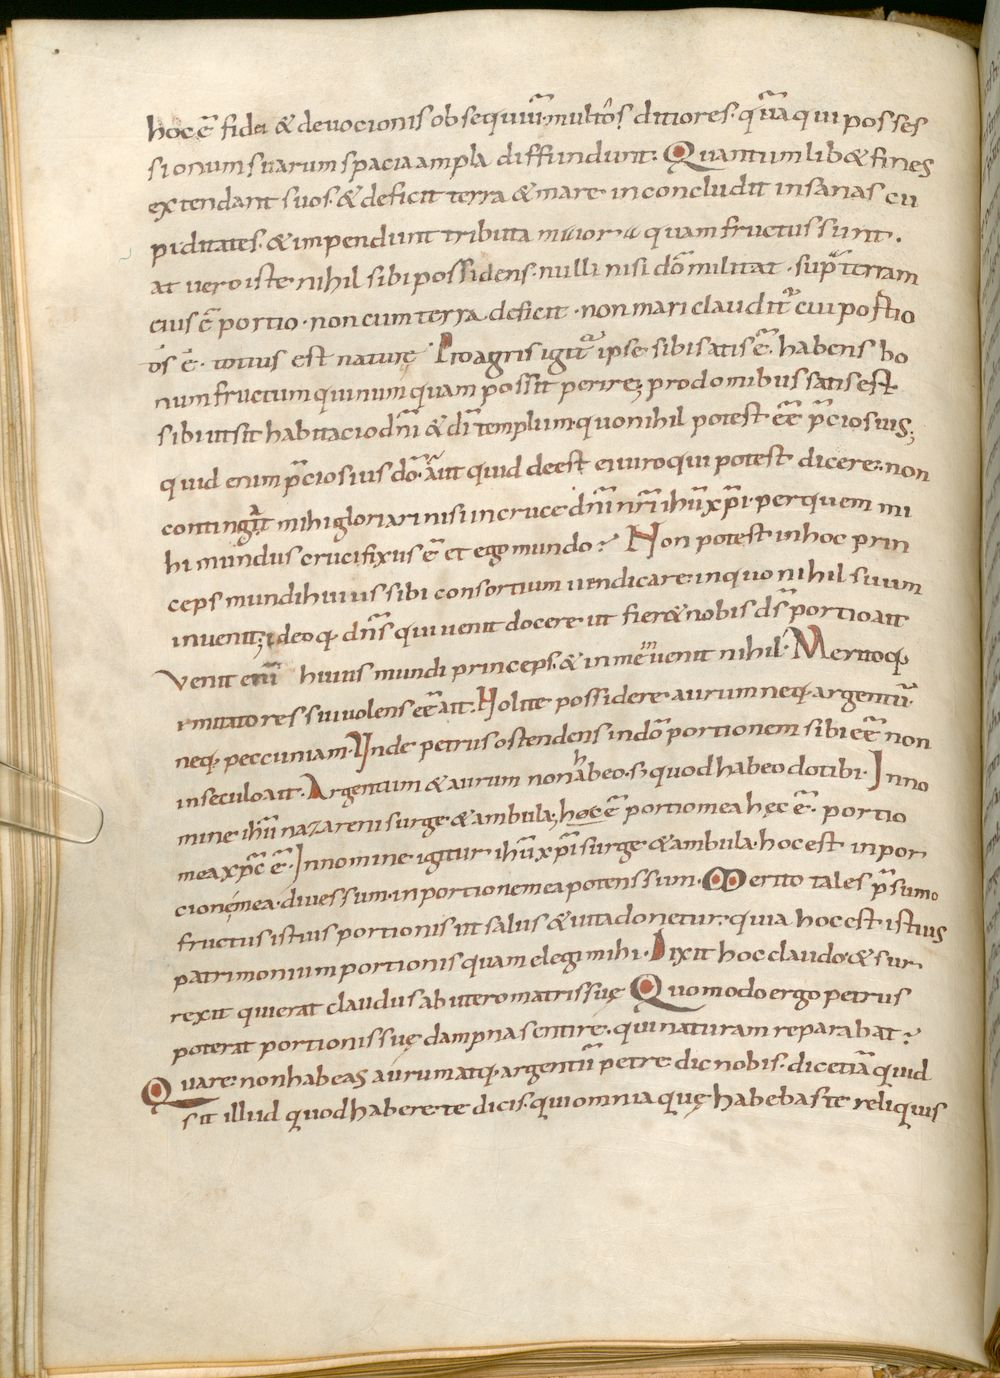 hoc ē fidei & devocionis obsequiū· multos ditiores· quā qui posses
sionum suarum spacia ampla diffundunt: Quantum lib& fines
extendant suos· & deficit terra & mare inconcludit insanas cu
piditates· & impendunt tributa maiora quam fructus sunt.
at vero iste nihil sibi possidens· nulli nisi dō militat· sup̄ terram
eius ē portio· non cum terra deficit· non mari claudit̃ cui portio
ōs ē· totius est naturę Pro agris igit̃ ipse sibi satis ē· habens bo
num fructum qui numquam possit perire; pro domibus satis est
sibi ut sit habitacio dn̄i & dī templum· quo nihil potest eē p̄ciosius;
quid enim p̄ciosius dō· aut quid deest ei viro qui potest dicere: non
conting̃t mihi gloriari nisi in cruce dn̄i nr̄i ihū xp̄i· per quem mi
hi mundus crucifixus ē et ego mundo? Non potest in hoc prin
ceps mundi huius sibi consortium vendicare in quo nihil suum
invenit; ideoq· dn̄s qui venit docere ut fier& nobis ds̄ portio ait
Venit eni huius mundi princeps· & in me invenit nihil· Meritoq·
imitatores sui volens eē ait· Nolite possidere aurum neq· argentū·
neq· peccuniam· Inde petrus ostendens in dō portionem sibi eē non
in seculo ait· Argentum & aurum non habeo· s; quod habeo do tibi· In no
mine ihū nazareni surge· & ambula; hoc ē portio mea hęc ē· portio
mea xp̄c ē· In nomine igitur ihū xp̄i surge & ambula· hoc est in por
cionę mea· dives sum· in portione mea potens sum· Merito tales p̄sumo
fructus istius portionis ut salus & vita donetur: quia hoc est istius
patrimonium portionis quam elegi mihi· Dixit hoc claudo· & sur
rexit qui erat claudus ab utero matris suę Quomodo ergo petrus
poterat portionis suę dampna sentire· qui naturam reparabat?
Quare non habeas aurum atq· argentū petre dic nobis· dic etiā quid
sit illud quod habere te dicis· qui omnia quę habebas te reliquis